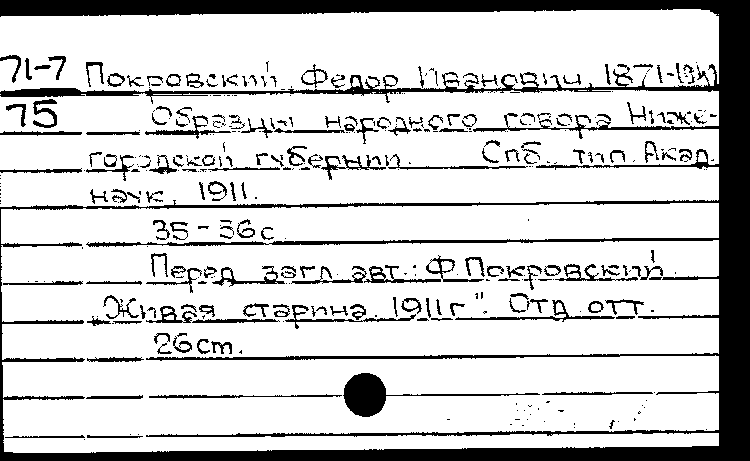 71-7 Покровский, Федор Иванович, 1871-1942
75 Образцы народного говора Ниже-
городской губернии. Спб. тип. Акад.
наук, 1911.
35-36с.
Перед загл. авт.: Ф Покровский.
„Живая старина. 1911г". Отд отт.
26cm.